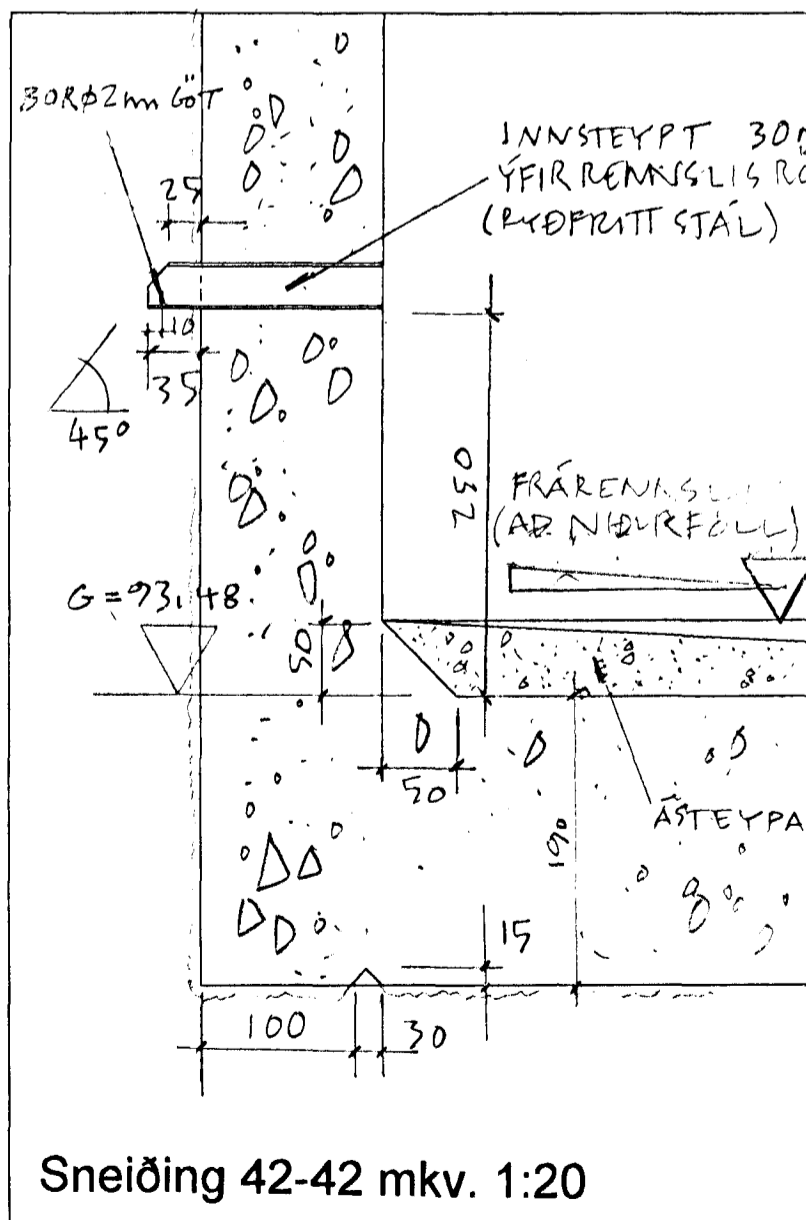 BORØ2mm GÖT
INNSTEYPT 30
ÝFIRRENNSLIS
(RYÐFRITT STÁL)
25
10
35
45°
250
FRÁRENNSL
(AÐ NIÐURFÖLL)
G=93,48
50
50
190
ÁSTEYPA
15
100
30
Sneiðing 42-42 mkv. 1:20